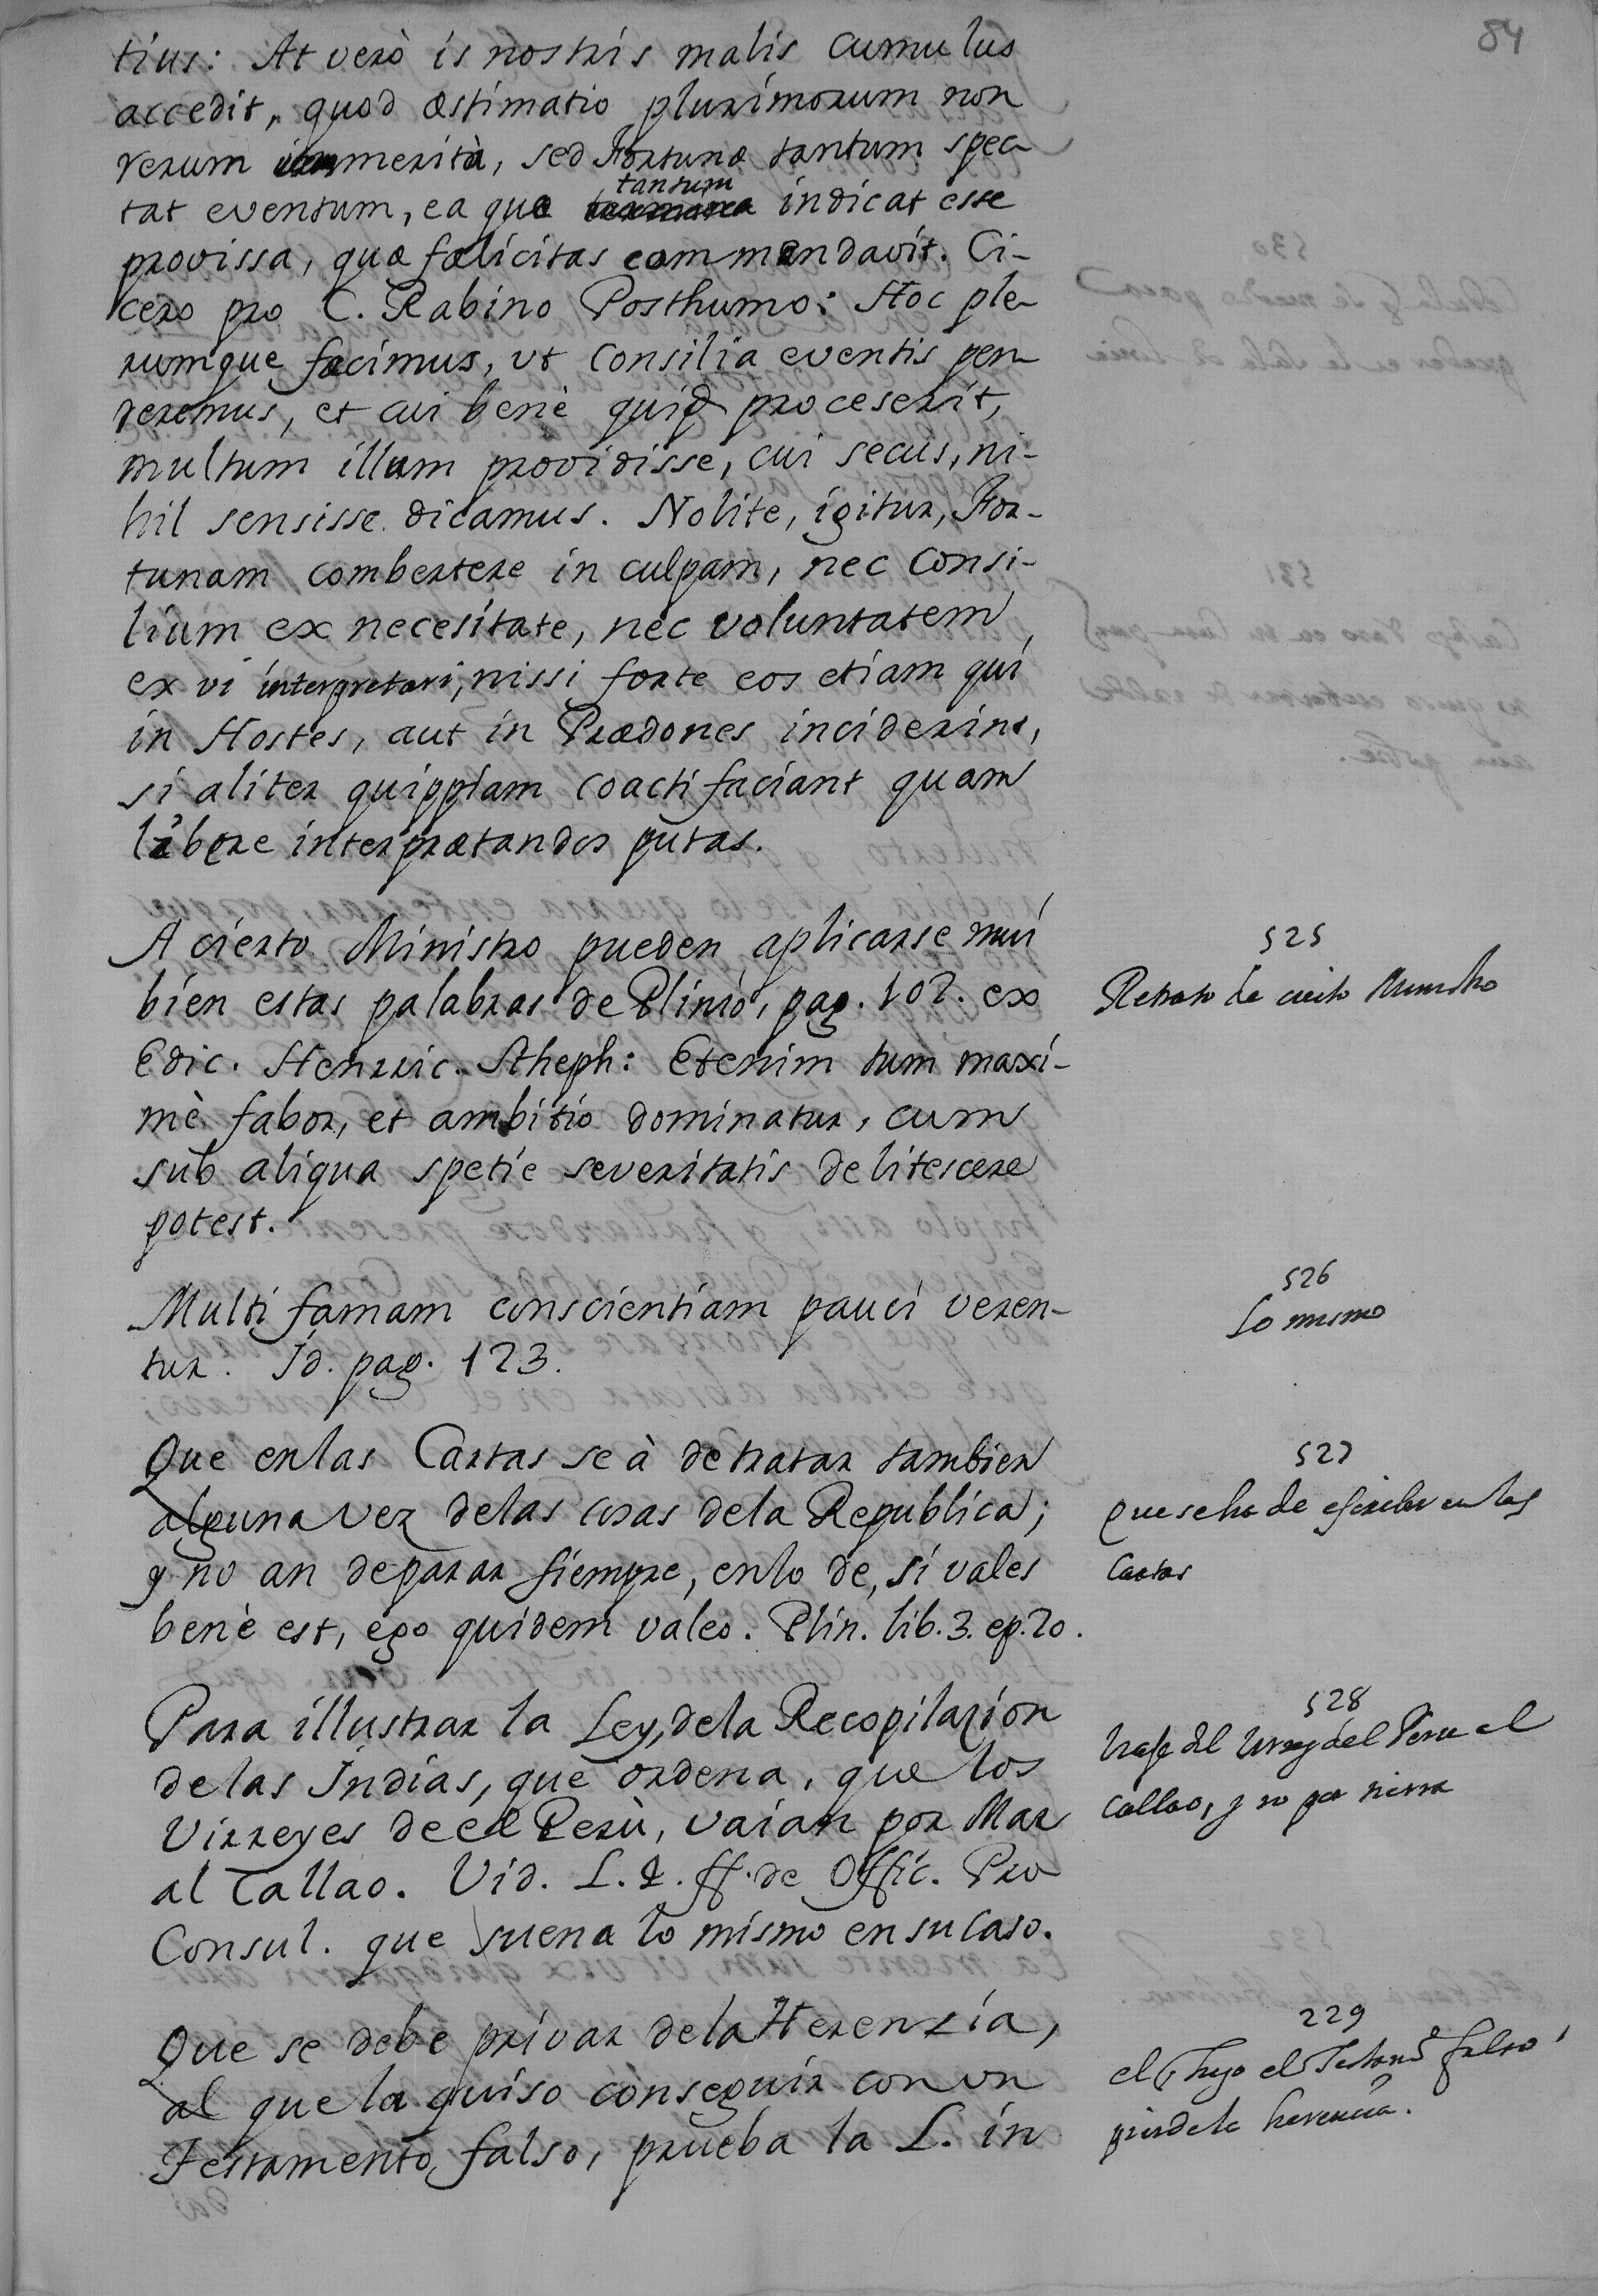 84
tius: At verò is nostris malis cumulus
accedit, quod æstimatio plurimorum non
rerum merita, sed Fortunæ tantum spec
tat eventum, ea quæ tantum indicat esse
provissa, quæ fælicitas commendavit. Ci-
cero pro C. Rabino Posthumo: Hoc ple
rumque facimus, vt consilia eventis pen
deremus, et cui benè quid proceserit,
multum illum providisse, cui secus, ni-
hil sensisse dicamus. Nolite, igitur, For-
tunam combertere in culpam, nec consi-
lium ex necesitate, nec voluntatem
ex vi interpretari, nissi forte eos etiam qui
in Hostes, aut in Prædones inciderint,
si aliter quippiam coacti faciant quam
libere interprætandos putas.
A cierto Ministro pueden aplicarse mui
bien estas palabras de Plinio, pag. 102. ex
Edic. Henrric. Stheph: Etenim tum maxi-
mè fabor, et ambitio dominatur, cum
sub aliqua spetie severitatis delitescere
potest.
525
Retrato de cierto Ministro
Multi famam conscientiam pauci veren-
tur. Id. pag. 123.
526
Lo mismo
Que en las Cartas se à de tratar tambien
alguna vez de las cosas de la Republica;
y no an de parar siempre, en lo de, si vales
benè est, ego quidem valeo. Plin. lib. 3. ep. 20.
527
Que se ha de escribir en las
Cartas
Para illustrar la Ley, de la Recopilazion
de las Indias, que ordena, que los
Virreyes de el Perù, vaian por Mar
al Callao. Vid. L. 4. ff. de Offic. Pro
Consul. que suena lo mismo en su caso.
528
del Virrey del Peru al
Callao, y no por tierra
Que se debe privar de la Herenzia,
al que la quiso conseguir con un
Testamento falso, prueba la L. in
229
el hizo el Testamto falso
pierde la herencia.